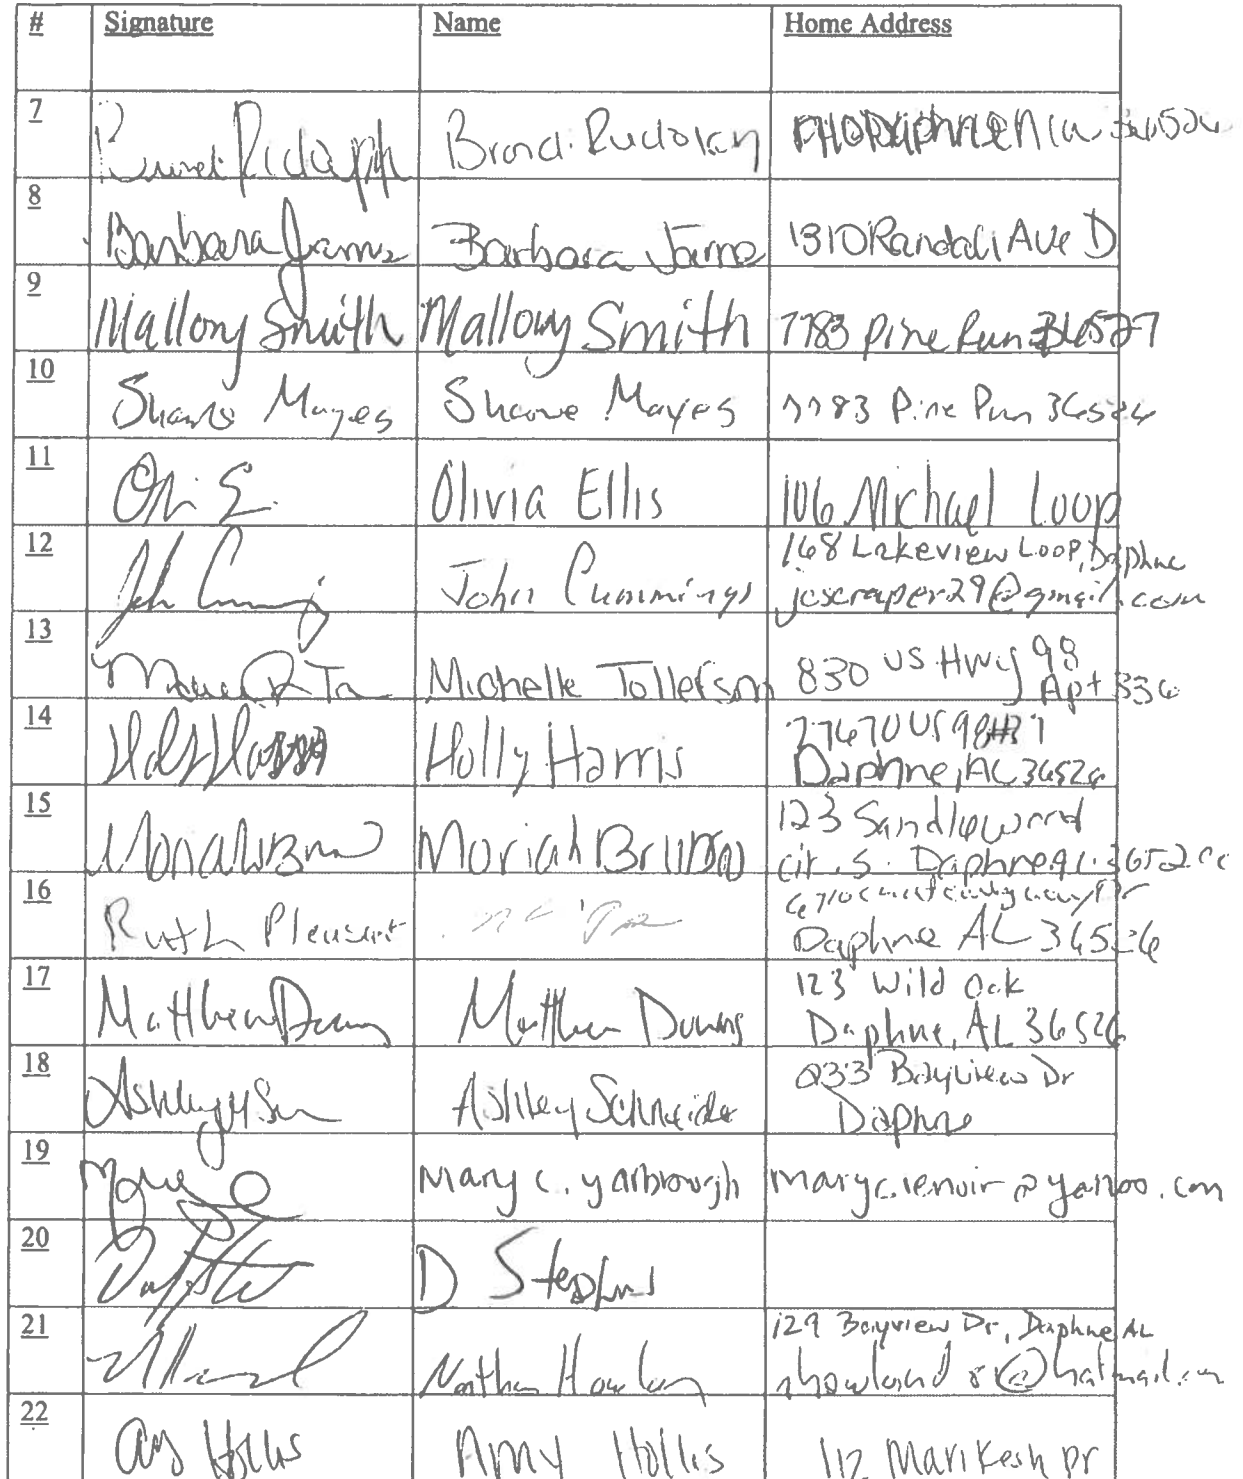 # Signature Name Home Address
7 Rudolph
8 Barbara James Barbara Jame 1310 Randall Ave D
9 Mallory Smith Mallory Smith 7783 Pine Run 36527
10 Mayes Mayes 7783 Pine Run 36526
11 Olivia Ellis 106 Michael Loop
12 John Cummings 168 Lakeview Loop, Daphne
jcscraper29@gmail.com
13 Michelle Tollefson 830 US Hwy 98
Apt 336
14 Holly Harris Holly Harris
Daphne, AL 36526
15 Moriah 123 Sandlewood
cir. S. Daphne
16 Ruth Pleasant
Daphne AL 36526
17 Matthew Downs Matthew Downs 123 Wild Oak
Daphne, AL 36526
18 Ashley Ashley Schneider Bayview Dr
Daphne
19 Mary C. Yarbrough maryc.lenoir@yahoo.com
20 D Stephens
21 129 Bayview Dr, Daphne AL
Nathan
22 Amy Hollis Amy Hollis 112 Marikesh Dr